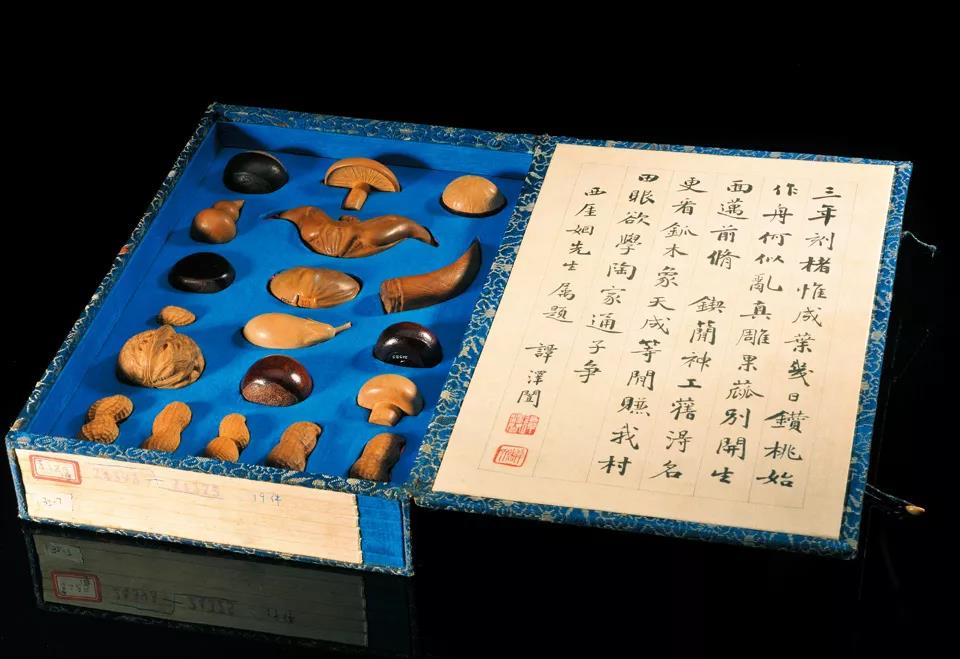 三年刻楮惟成葉幾日鑽桃始
作舟何似亂真雕果蓏別開生
面邁前脩　鍥簡神工藉得名
更看觚木象天成等閒賺我村
田眼欲學陶家通子爭
西厓姻先生属題
譚澤闓
19件